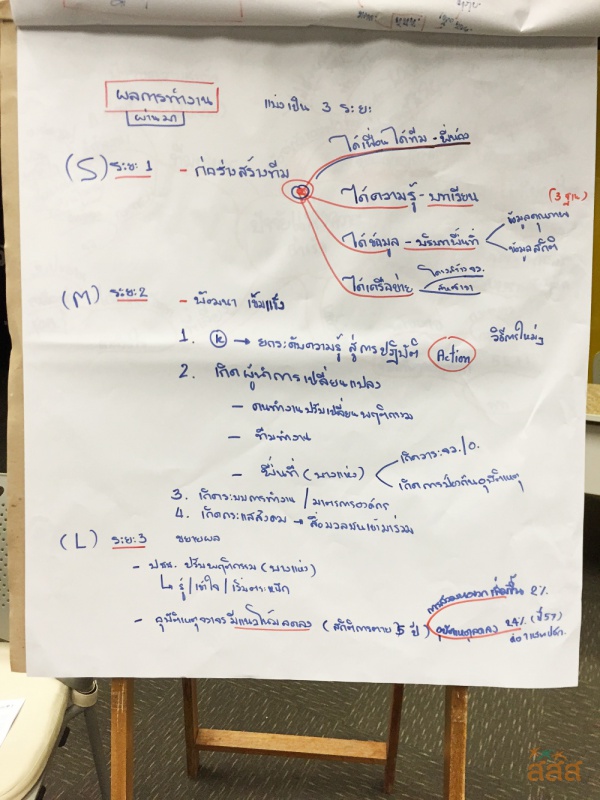 ผลการทำงาน
ผ่านมา
แบ่งเป็น 3 ระยะ
(S) ระยะ 1 - ก่อร่างสร้างทีม
ได้เพื่อน ได้ทีม - พี่น้อง
ได้ความรู้ - บทเรียน
(3 ฐาน)
ได้ข้อมูล - บริบทพื้นที่
ข้อมูลคุณภาพ
ข้อมูลสถิติ
ได้เครือข่าย
(M) ระยะ 2 - พัฒนา เข้มแข็ง
1. K → ยกระดับความรู้ สู่ การปฏิบัติ Action วิธีการใหม่ๆ
2. เกิดผู้นำการเปลี่ยนแปลง
- คนทำงานปรับเปลี่ยนพฤติกรรม
- ทีมทำงาน
- พื้นที่ (บางแห่ง)
เกิดวาระ จว./อ.
เกิดการป้องกันอุบัติเหตุ
3. เกิดระบบการทำงาน / มาตรการองค์กร
4. เกิดกระแสสังคม → สื่อมวลชนเข้ามาร่วม
(L) ระยะ 3 ขยายผล
- ปชช. ปรับพฤติกรรม (บางแห่ง)
↳ รู้ / เข้าใจ / เริ่มตระหนัก
- อุบัติเหตุจราจรมีแนวโน้มลดลง (สถิติการตาย 5 ปี)
การสวมหมวก เพิ่มขึ้น 2%
อุบัติเหตุลดลง 24% (ปี 57)
สสส